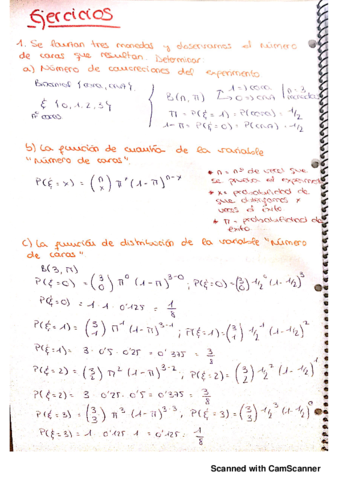 Ejercicios
1. Se lanzan tres monedas y observamos el número
de caras que resultan. Determinar:
a) Número de realizaciones del experimento
Binomial {cara, cruz}
ξ {0, 1, 2, 3}
nº caras
B(n, π) 1 = cara n = 3
0 = cruz monedas
π = P(ξ=1) = P(cara) = 1/2
1-π = P(ξ=0) = P(cruz) = 1/2
b) La función de cuantía de la variable
"Número de caras"
P(ξ=x) = (n x) πˣ (1-π)ⁿ⁻ˣ
* n = nº de veces que
se prueba el experimento
* x = probabilidad de
que ocurra x
veces el éxito
* π = probabilidad de
éxito
c) La función de distribución de la variable "Número
de caras"
B(3, π)
P(ξ=0) = (3 0) π⁰ (1-π)³⁻⁰ ; P(ξ=0) = (3 0) 1/2⁰ (1-1/2)³
P(ξ=0) = 1 · 1 · 0'125 = 1/8
P(ξ=1) = (3 1) π¹ (1-π)³⁻¹ ; P(ξ=1) = (3 1) 1/2¹ (1-1/2)²
P(ξ=1) = 3 · 0'5 · 0'25 = 0'375 = 3/8
P(ξ=2) = (3 2) π² (1-π)³⁻² ; P(ξ=2) = (3 2) 1/2² (1-1/2)¹
P(ξ=2) = 3 · 0'25 · 0'5 = 0'375 = 3/8
P(ξ=3) = (3 3) π³ (1-π)³⁻³ ; P(ξ=3) = (3 3) 1/2³ (1-1/2)⁰
P(ξ=3) = 1 · 0'125 · 1 = 0'125 = 1/8
Scanned with CamScanner